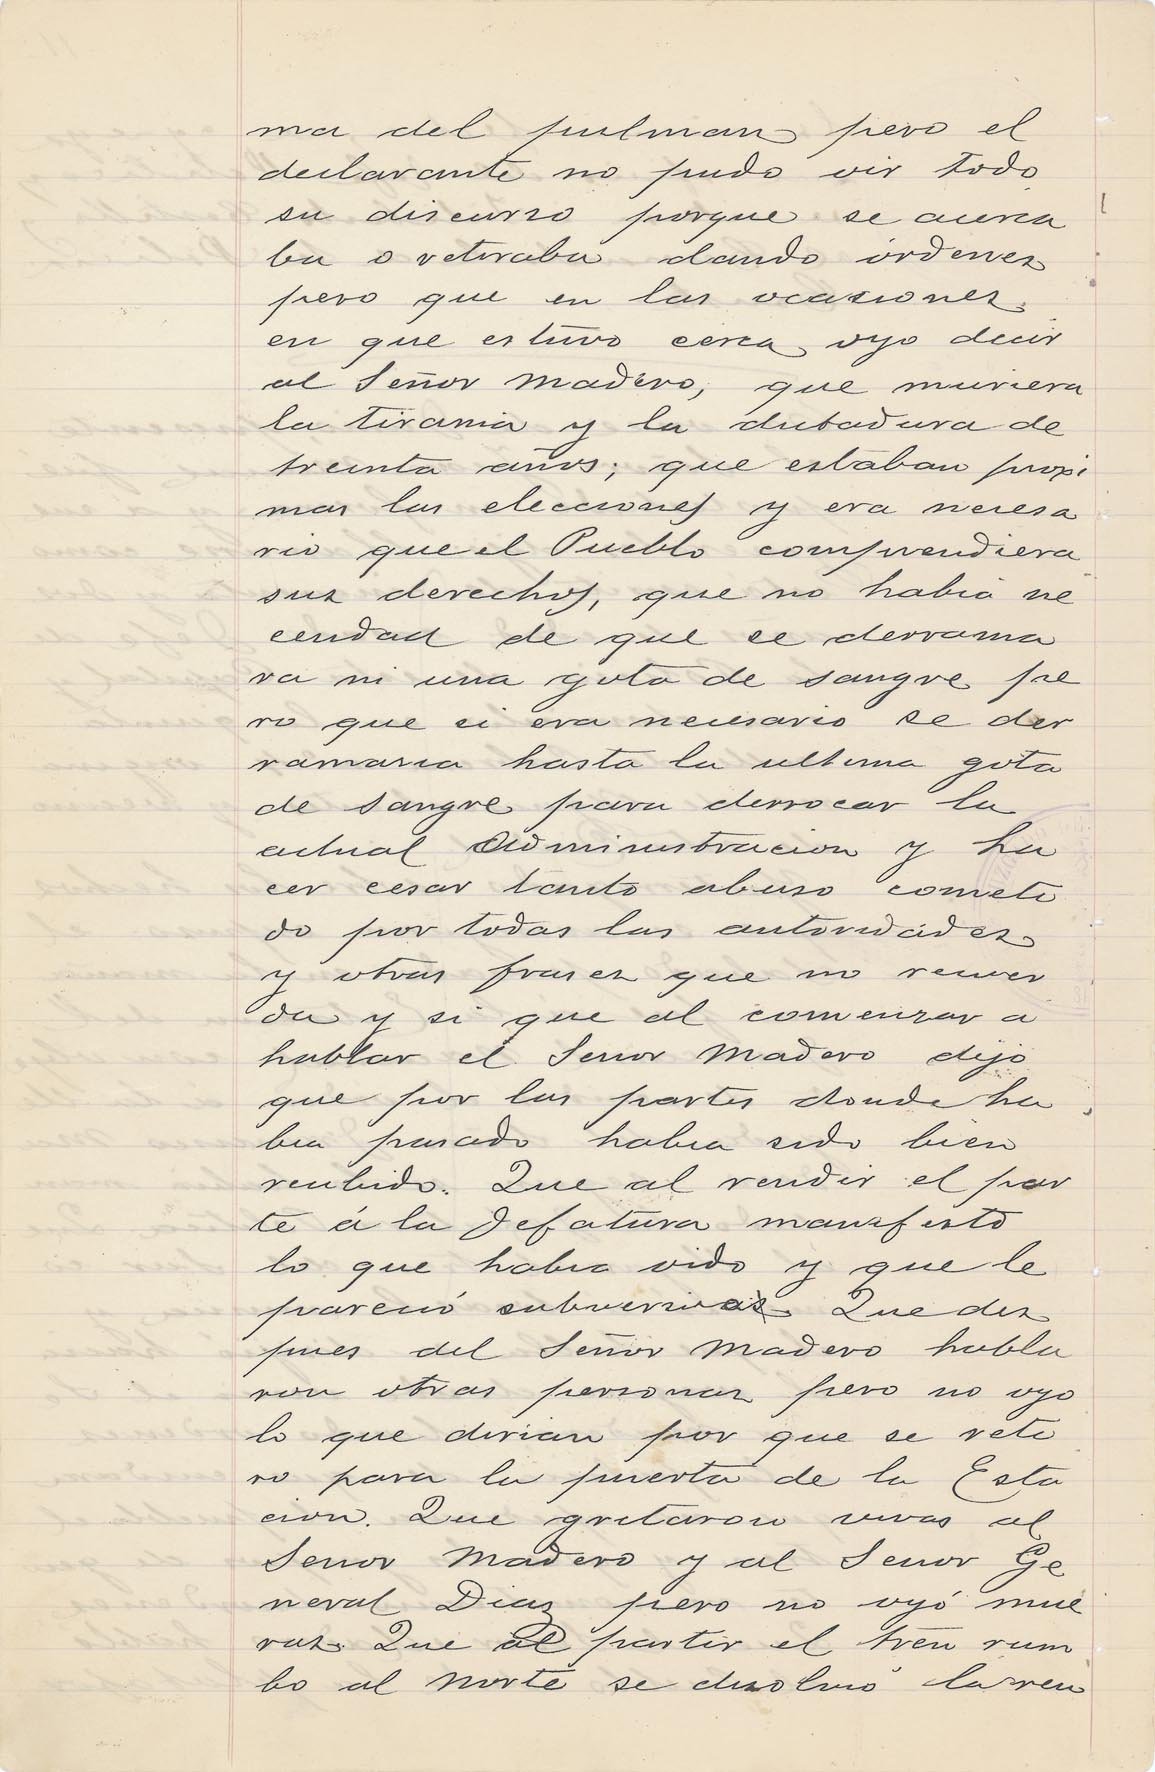 ma del pulman pero el
declarante no pudo oir todo
su discurso porque se acerca
ba o retiraba dando órdenes
pero que en las ocasiones
en que estuvo cerca oyo decir
al Señor Madero, que muriera
la tirania y la dictadura de
treinta años; que estaban proxi
mas las elecciones y era necesa
rio que el Pueblo comprendiera
sus derechos, que no habia ne
cecidad de que se derrama
ra ni una gota de sangre pe
ro que ci era necesario se der
ramaria hasta la ultima gota
de sangre para derrocar la
actual Administracion y ha
cer cesar tanto abuso cometi
do por todas las autoridades
y otras frases que no recuer
da y si que al comenzar a
hablar el Senor Madero dijo
que por las partes donde ha
bia pasado habia sido bien
recibido. Que al rendir el par
te á la Jefatura manifestó
lo que habia oido y que le
pareció subversivas. Que des
pues del Señor Madero habla
ron otras personas pero no oyo
lo que dirian por que se reti
ro para la puerta de la Esta
cion. Que gritaron vivas al
Senor Madero y al Senor Ge
neral Diaz pero no oyó mue
ras. Que al partir el tren rum
bo al Norte se disolvió la reu